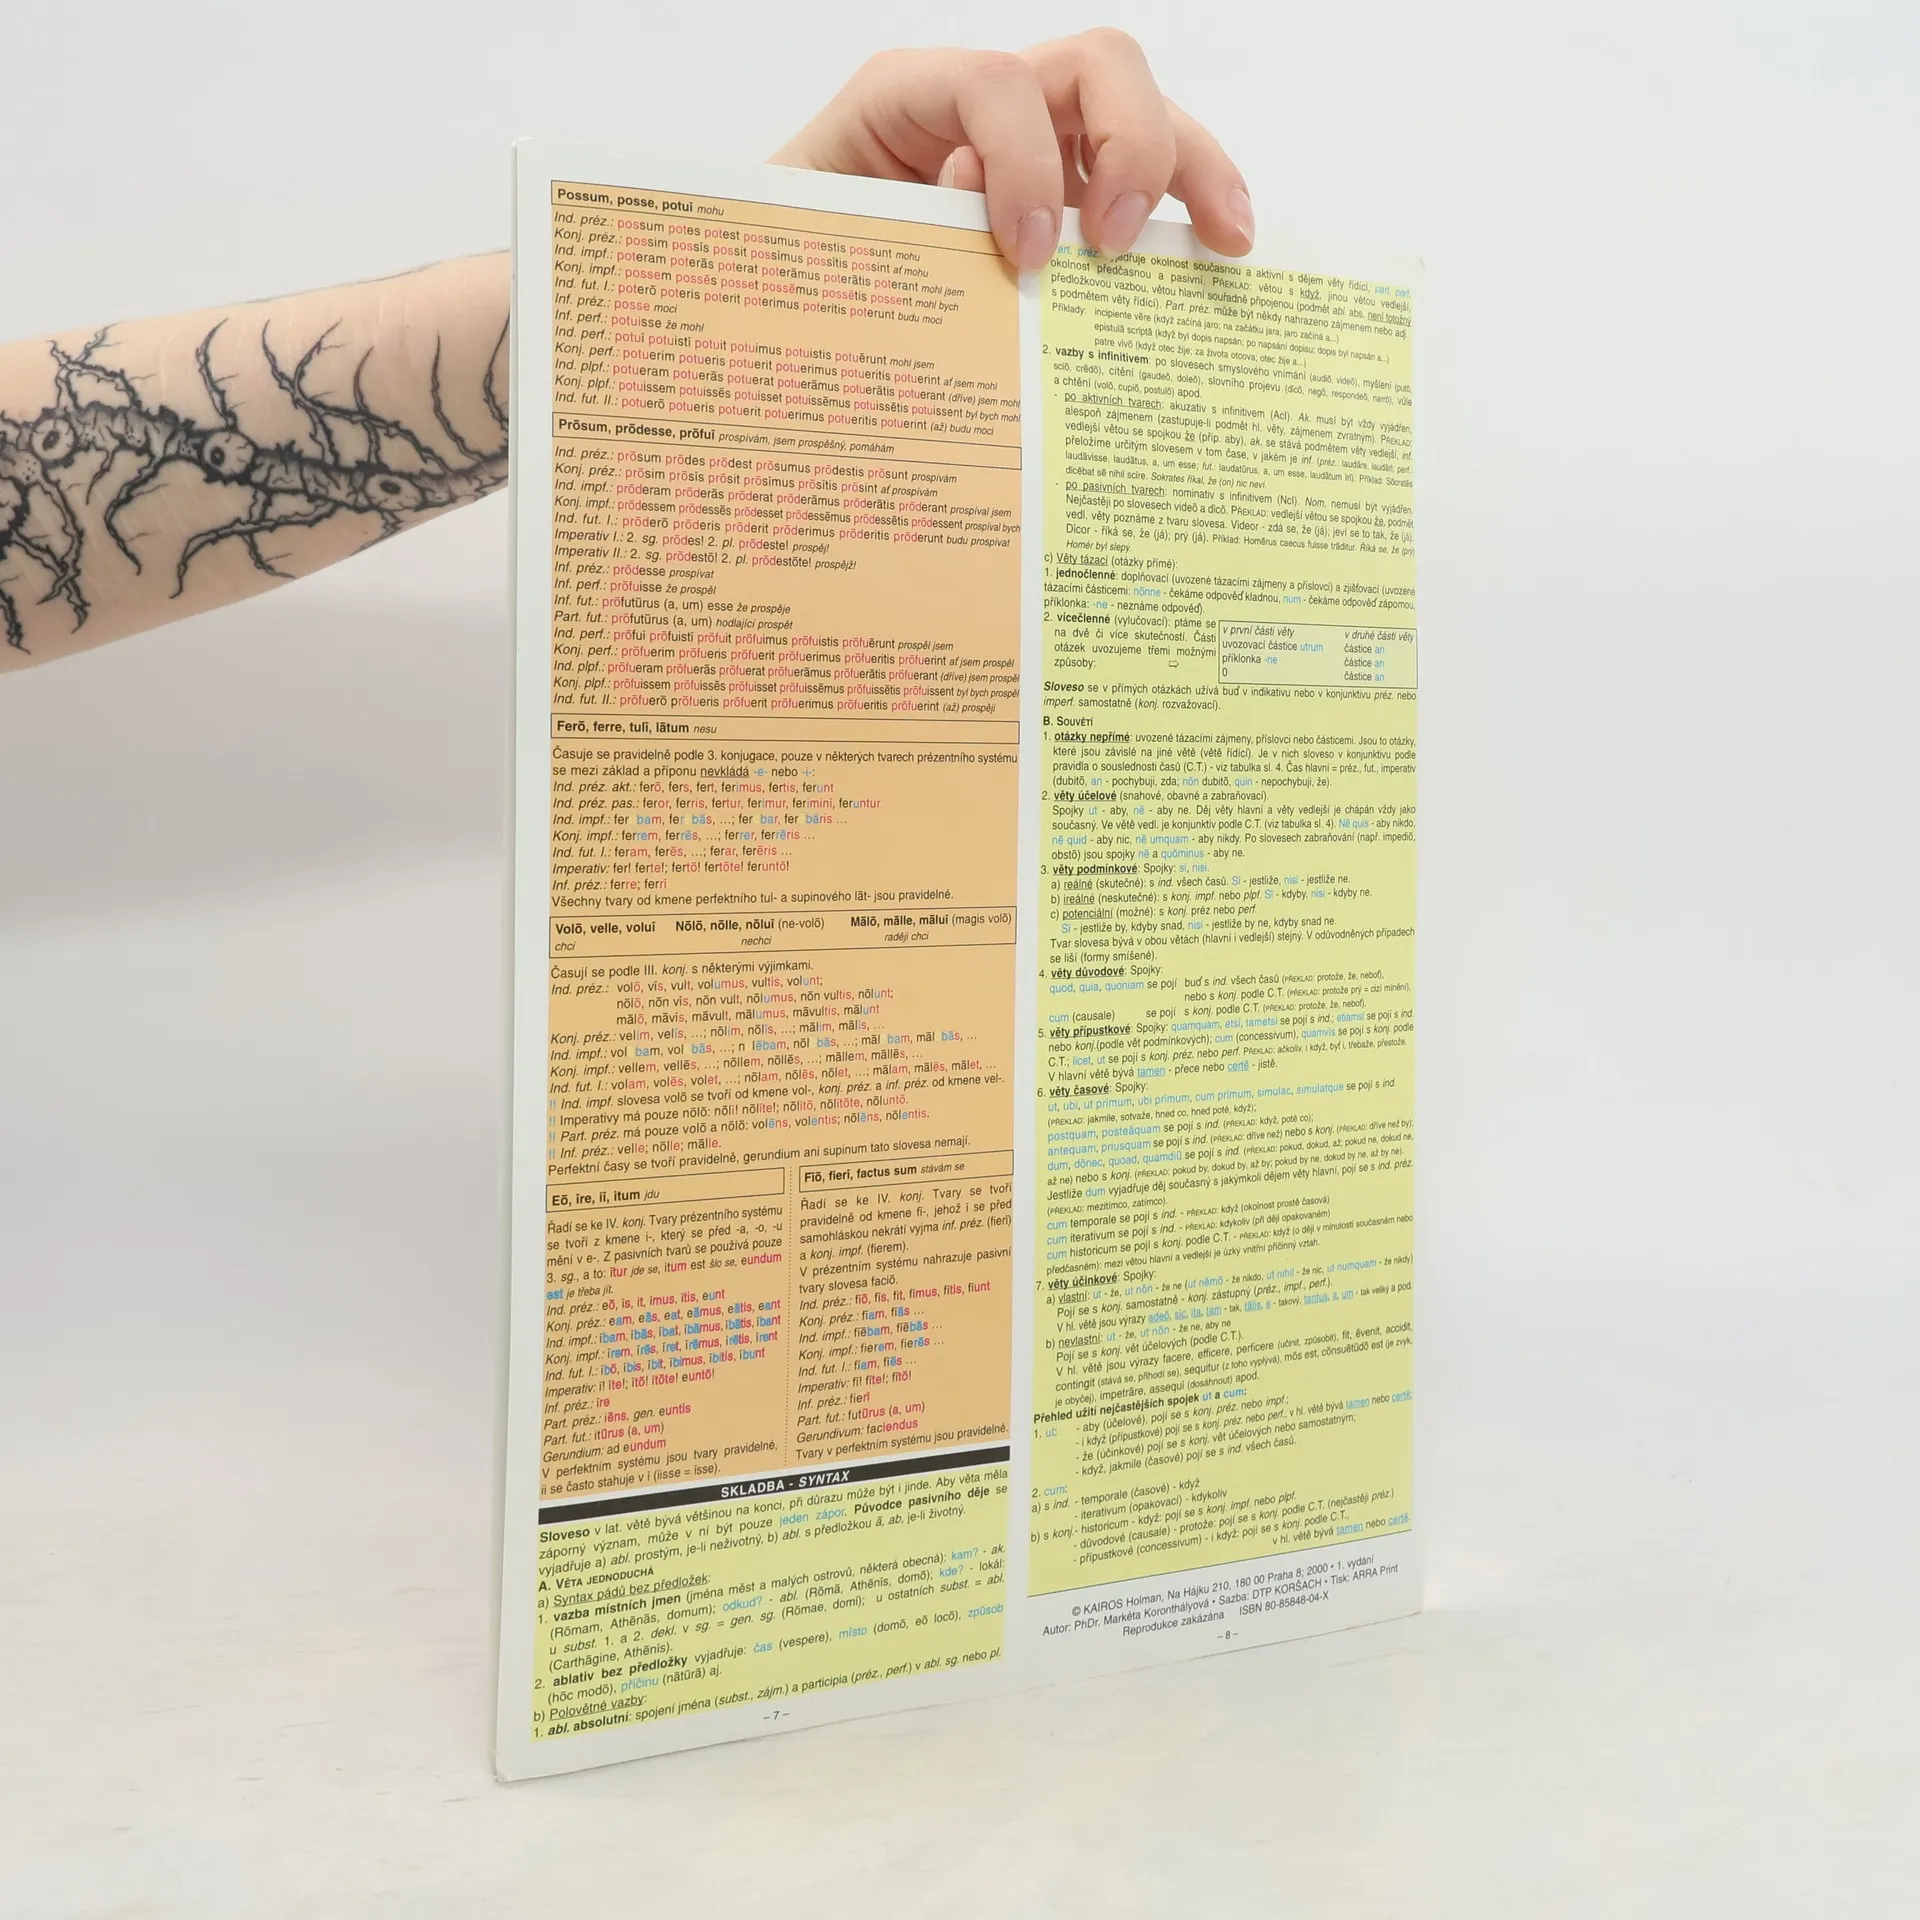 Possum, posse, potuī mohu
Ind. préz.: possum potes potest possumus potestis possunt mohu
Konj. préz.: possim possīs possit possīmus possītis possint ať mohu
Ind. impf.: poteram poterās poterat poterāmus poterātis poterant mohl jsem
Konj. impf.: possem possēs posset possēmus possētis possent mohl bych
Ind. fut. I.: poterō poteris poterit poterimus poteritis poterunt budu moci
Inf. préz.: posse moci
Inf. perf.: potuisse že mohl
Ind. perf.: potuī potuistī potuit potuimus potuistis potuērunt mohl jsem
Konj. perf.: potuerim potueris potuerit potuerimus potueritis potuerint ať jsem mohl
Ind. plpf.: potueram potuerās potuerat potuerāmus potuerātis potuerant (dříve) jsem mohl
Konj. plpf.: potuissem potuissēs potuisset potuissēmus potuissētis potuissent byl bych mohl
Ind. fut. II.: potuerō potueris potuerit potuerimus potueritis potuerint (až) budu moci
Prōsum, prōdesse, prōfuī prospívám, jsem prospěšný, pomáhám
Ind. préz.: prōsum prōdes prōdest prōsumus prōdestis prōsunt prospívám
Konj. préz.: prōsim prōsīs prōsit prōsīmus prōsītis prōsint ať prospívám
Ind. impf.: prōderam prōderās prōderat prōderāmus prōderātis prōderant prospíval jsem
Konj. impf.: prōdessem prōdessēs prōdesset prōdessēmus prōdessētis prōdessent prospíval bych
Ind. fut. I.: prōderō prōderis prōderit prōderimus prōderitis prōderunt budu prospívat
Imperativ I.: 2. sg. prōdes! 2. pl. prōdeste! prospěj!
Imperativ II.: 2. sg. prōdestō! 2. pl. prōdestōte! prospějž!
Inf. préz.: prōdesse prospívat
Inf. perf.: prōfuisse že prospěl
Inf. fut.: prōfutūrus (a, um) esse že prospěje
Part. fut.: prōfutūrus (a, um) hodlající prospět
Ind. perf.: prōfuī prōfuistī prōfuit prōfuimus prōfuistis prōfuērunt prospěl jsem
Konj. perf.: prōfuerim prōfueris prōfuerit prōfuerimus prōfueritis prōfuerint ať jsem prospěl
Ind. plpf.: prōfueram prōfuerās prōfuerat prōfuerāmus prōfuerātis prōfuerant (dříve) jsem prospěl
Konj. plpf.: prōfuissem prōfuissēs prōfuisset prōfuissēmus prōfuissētis prōfuissent byl bych prospěl
Ind. fut. II.: prōfuerō prōfueris prōfuerit prōfuerimus prōfueritis prōfuerint (až) prospěji
Ferō, ferre, tulī, lātum nesu
Časuje se pravidelně podle 3. konjugace, pouze v některých tvarech prézentního systému
se mezi základ a příponu nevkládá -e- nebo -i-:
Ind. préz. akt.: ferō, fers, fert, ferimus, fertis, ferunt
Ind. préz. pas.: feror, ferris, fertur, ferimur, feriminī, feruntur
Ind. impf.: fer bam, fer bās, ...; fer bar, fer bāris ...
Konj. impf.: ferrem, ferrēs, ...; ferrer, ferrēris ...
Ind. fut. I.: feram, ferēs, ...; ferar, ferēris ...
Imperativ: fer! ferte!; fertō! fertōte! feruntō!
Inf. préz.: ferre; ferrī
Všechny tvary od kmene perfektního tul- a supinového lāt- jsou pravidelné.
Volō, velle, voluī Nōlō, nōlle, nōluī (ne-volō) Mālō, mālle, māluī (magis volō)
chci nechci raději chci
Časují se podle III. konj. s některými výjimkami.
Ind. préz.: volō, vīs, vult, volumus, vultis, volunt;
nōlō, nōn vīs, nōn vult, nōlumus, nōn vultis, nōlunt;
mālō, māvīs, māvult, mālumus, māvultis, mālunt
Konj. préz.: velim, velīs, ...; nōlim, nōlīs, ...; mālim, mālīs, ...
Ind. impf.: vol bam, vol bās, ...; n lēbam, nōl bās, ...; māl bam, māl bās, ...
Konj. impf.: vellem, vellēs, ...; nōllem, nōllēs, ...; māllem, māllēs, ...
Ind. fut. I.: volam, volēs, volet, ...; nōlam, nōlēs, nōlet, ...; mālam, mālēs, mālet, ...
!! Ind. impf. slovesa volō se tvoří od kmene vol-, konj. préz. a inf. préz. od kmene vel-.
!! Imperativy má pouze nōlō: nōlī! nōlīte!; nōlītō, nōlītōte, nōluntō.
!! Part. préz. má pouze volō a nōlō: volēns, volentis; nōlēns, nōlentis.
!! Inf. préz.: velle; nōlle; mālle.
Perfektní časy se tvoří pravidelně, gerundium ani supinum tato slovesa nemají.
Eō, īre, iī, itum jdu
Řadí se ke IV. konj. Tvary prézentního systému
se tvoří z kmene i-, který se před -a, -o, -u
mění v e-. Z pasivních tvarů se používá pouze
3. sg., a to: ītur jde se, itum est šlo se, eundum
est je třeba jít.
Ind. préz.: eō, īs, it, īmus, ītis, eunt
Konj. préz.: eam, eās, eat, eāmus, eātis, eant
Ind. impf.: ībam, ībās, ībat, ībāmus, ībātis, ībant
Konj. impf.: īrem, īrēs, īret, īrēmus, īrētis, īrent
Ind. fut. I.: ībō, ībis, ībit, ībimus, ībitis, ībunt
Imperativ: ī! īte!; ītō! ītōte! euntō!
Inf. préz.: īre
Part. préz.: iēns, gen. euntis
Part. fut.: itūrus (a, um)
Gerundium: ad eundum
V perfektním systému jsou tvary pravidelné,
ii se často stahuje v ī (iisse = īsse).
Fīō, fierī, factus sum stávám se
Řadí se ke IV. konj. Tvary se tvoří
pravidelně od kmene fī-, jehož ī se před
samohláskou nekrátí vyjma inf. préz. (fierī)
a konj. impf. (fierem).
V prézentním systému nahrazuje pasivní
tvary slovesa faciō.
Ind. préz.: fīō, fīs, fit, fīmus, fītis, fīunt
Konj. préz.: fīam, fīās ...
Ind. impf.: fīēbam, fīēbās ...
Konj. impf.: fierem, fierēs ...
Ind. fut. I.: fīam, fīēs ...
Imperativ: fī! fīte!; fītō!
Inf. préz.: fierī
Part. fut.: futūrus (a, um)
Gerundivum: faciendus
Tvary v perfektním systému jsou pravidelné.
SKLADBA - SYNTAX
Sloveso v lat. větě bývá většinou na konci, při důrazu může být i jinde. Aby věta měla
záporný význam, může v ní být pouze jeden zápor. Původce pasivního děje se
vyjadřuje a) abl. prostým, je-li neživotný, b) abl. s předložkou ā, ab, je-li životný.
A. VĚTA JEDNODUCHÁ
a) Syntax pádů bez předložek:
1. vazba místních jmen (jména měst a malých ostrovů, některá obecná): kam? - ak.
(Rōmam, Athēnās, domum); odkud? - abl. (Rōmā, Athēnīs, domō); kde? - lokál:
u subst. 1. a 2. dekl. v sg. = gen. sg. (Rōmae, domī); u ostatních subst. = abl.
(Carthāgine, Athēnīs).
2. ablativ bez předložky vyjadřuje: čas (vespere), místo (domō, eō locō), způsob
(hōc modō), příčinu (nātūrā) aj.
b) Polovětné vazby:
1. abl. absolutní: spojení jména (subst., zájm.) a participia (préz., perf.) v abl. sg. nebo pl.
– 7 –
part. préz. vyjadřuje okolnost současnou a aktivní s dějem věty řídící, part. perf.
okolnost předčasnou a pasivní. PŘEKLAD: větou s když, jinou větou vedlejší,
předložkovou vazbou, větou hlavní souřadně připojenou (podmět abl. abs. není totožný
s podmětem věty řídící). Part. préz. může být někdy nahrazeno zájmenem nebo adj.
Příklady: incipiente vēre (když začíná jaro; na začátku jara; jaro začíná a...)
epistulā scrīptā (když byl dopis napsán; po napsání dopisu; dopis byl napsán a...)
patre vīvō (když otec žije; za života otcova; otec žije a...)
2. vazby s infinitivem: po slovesech smyslového vnímání (audiō, videō), myšlení (putō,
sciō, crēdō), cítění (gaudeō, doleō), slovního projevu (dīcō, negō, respondeō, narrō), vůle
a chtění (volō, cupiō, postulō) apod.
- po aktivních tvarech: akuzativ s infinitivem (AcI). Ak. musí být vždy vyjádřen,
alespoň zájmenem (zastupuje-li podmět hl. věty, zájmenem zvratným). PŘEKLAD:
vedlejší větou se spojkou že (příp. aby), ak. se stává podmětem věty vedlejší, inf.
přeložíme určitým slovesem v tom čase, v jakém je inf. (préz.: laudāre, laudārī; perf.:
laudāvisse, laudātus, a, um esse; fut.: laudatūrus, a, um esse, laudātum īrī). Příklad: Sōcratēs
dīcēbat sē nihil scīre. Sokrates říkal, že (on) nic neví.
- po pasivních tvarech: nominativ s infinitivem (NcI). Nom. nemusí být vyjádřen.
Nejčastěji po slovesech videō a dīcō. PŘEKLAD: vedlejší větou se spojkou že, podmět
vedl. věty poznáme z tvaru slovesa. Videor - zdá se, že (já); jeví se to tak, že (já).
Dīcor - říká se, že (já); prý (já). Příklad: Homērus caecus fuisse trāditur. Říká se, že (prý)
Homér byl slepý.
c) Věty tázací (otázky přímé):
1. jednočlenné: doplňovací (uvozené tázacími zájmeny a příslovci) a zjišťovací (uvozené
tázacími částicemi: nōnne - čekáme odpověď kladnou, num - čekáme odpověď zápornou,
příklonka: -ne - neznáme odpověď).
2. vícečlenné (vylučovací): ptáme se
na dvě či více skutečností. Části
otázek uvozujeme třemi možnými
způsoby: ⇨
v první části věty v druhé části věty
uvozovací částice utrum částice an
příklonka -ne částice an
0 částice an
Sloveso se v přímých otázkách užívá buď v indikativu nebo v konjunktivu préz. nebo
imperf. samostatně (konj. rozvažovací).
B. SOUVĚTÍ
1. otázky nepřímé: uvozené tázacími zájmeny, příslovci nebo částicemi. Jsou to otázky,
které jsou závislé na jiné větě (větě řídící). Je v nich sloveso v konjunktivu podle
pravidla o souslednosti časů (C.T.) - viz tabulka sl. 4. Čas hlavní = préz., fut., imperativ
(dubitō, an - pochybuji, zda; nōn dubitō, quīn - nepochybuji, že).
2. věty účelové (snahové, obavné a zabraňovací).
Spojky ut - aby, nē - aby ne. Děj věty hlavní a věty vedlejší je chápán vždy jako
současný. Ve větě vedl. je konjunktiv podle C.T. (viz tabulka sl. 4). Nē quis - aby nikdo,
nē quid - aby nic, nē umquam - aby nikdy. Po slovesech zabraňování (např. impediō,
obstō) jsou spojky nē a quōminus - aby ne.
3. věty podmínkové: Spojky: sī, nisi.
a) reálné (skutečné): s ind. všech časů. Sī - jestliže, nisi - jestliže ne.
b) ireálné (neskutečné): s konj. impf. nebo plpf. Sī - kdyby, nisi - kdyby ne.
c) potenciální (možné): s konj. préz nebo perf.
Sī - jestliže by, kdyby snad, nisi - jestliže by ne, kdyby snad ne.
Tvar slovesa bývá v obou větách (hlavní i vedlejší) stejný. V odůvodněných případech
se liší (formy smíšené).
4. věty důvodové: Spojky:
quod, quia, quoniam se pojí buď s ind. všech časů (PŘEKLAD: protože, že, neboť),
nebo s konj. podle C.T. (PŘEKLAD: protože prý = cizí mínění).
cum (causale) se pojí s konj. podle C.T. (PŘEKLAD: protože, že, neboť).
5. věty přípustkové: Spojky: quamquam, etsī, tametsī se pojí s ind.; etiamsī se pojí s ind.
nebo konj.(podle vět podmínkových); cum (concessivum), quamvīs se pojí s konj. podle
C.T.; licet, ut se pojí s konj. préz. nebo perf. PŘEKLAD: ačkoliv, i když, byť i, třebaže, přestože.
V hlavní větě bývá tamen - přece nebo certē - jistě.
6. věty časové: Spojky:
ut, ubi, ut prīmum, ubi prīmum, cum prīmum, simulac, simulatque se pojí s ind.
(PŘEKLAD: jakmile, sotvaže, hned co, hned poté, když);
postquam, posteāquam se pojí s ind. (PŘEKLAD: když, poté co);
antequam, priusquam se pojí s ind. (PŘEKLAD: dříve než) nebo s konj. (PŘEKLAD: dříve než by);
dum, dōnec, quoad, quamdiū se pojí s ind. (PŘEKLAD: pokud, dokud, až; pokud ne, dokud ne,
až ne) nebo s konj. (PŘEKLAD: pokud by, dokud by, až by; pokud by ne, dokud by ne, až by ne).
Jestliže dum vyjadřuje děj současný s jakýmkoli dějem věty hlavní, pojí se s ind. préz.
(PŘEKLAD: mezitímco, zatímco).
cum temporale se pojí s ind. - PŘEKLAD: když (okolnost prostě časová)
cum iterativum se pojí s ind. - PŘEKLAD: kdykoliv (při ději opakovaném)
cum historicum se pojí s konj. podle C.T. - PŘEKLAD: když (o ději v minulosti současném nebo
předčasném): mezi větou hlavní a vedlejší je úzký vnitřní příčinný vztah.
7. věty účinkové: Spojky:
a) vlastní: ut - že, ut nōn - že ne (ut nēmō - že nikdo, ut nihil - že nic, ut numquam - že nikdy)
Pojí se s konj. samostatně - konj. zástupný (préz., impf., perf.).
V hl. větě jsou výrazy adeō, sīc, ita, tam - tak, tālis, e - takový, tantus, a, um - tak veliký a pod.
b) nevlastní: ut - že, ut nōn - že ne, aby ne
Pojí se s konj. vět účelových (podle C.T.).
V hl. větě jsou výrazy facere, efficere, perficere (učinit, způsobit), fit, ēvenit, accidit,
contingit (stává se, přihodí se), sequitur (z toho vyplývá), mōs est, cōnsuētūdō est (je zvyk,
je obyčej), impetrāre, assequī (dosáhnout) apod.
Přehled užití nejčastějších spojek ut a cum:
1. ut: - aby (účelové), pojí se s konj. préz. nebo impf.;
- i když (přípustkové) pojí se s konj. préz. nebo perf., v hl. větě bývá tamen nebo certē;
- že (účinkové) pojí se s konj. vět účelových nebo samostatným;
- když, jakmile (časové) pojí se s ind. všech časů.
2. cum:
a) s ind. - temporale (časové) - když
- iterativum (opakovací) - kdykoliv
b) s konj.- historicum - když: pojí se s konj. impf. nebo plpf.
- důvodové (causale) - protože: pojí se s konj. podle C.T. (nejčastěji préz.)
- přípustkové (concessivum) - i když: pojí se s konj. podle C.T.,
v hl. větě bývá tamen nebo certē.
© KAIROS Holman, Na Hájku 210, 180 00 Praha 8; 2000 • 1. vydání
Autor: PhDr. Markéta Koronthályová • Sazba: DTP KORŠACH • Tisk: ARRA Print
Reprodukce zakázána ISBN 80-85848-04-X
– 8 –